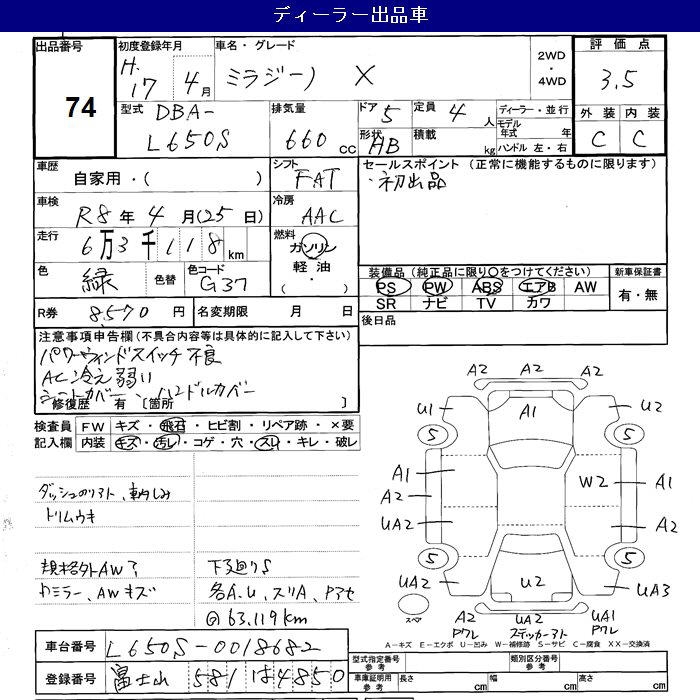 ディーラー出品車
出品番号 初度登録年月 車名・グレード 評価点
H.17年 4月 ミラジーノ X 2WD・4WD 3.5
74
型式 DBA-L650S 排気量 660cc ドア 5 定員 4人 ディーラー・並行 外装 内装
形状 HB 積載 kg モデル年式 年 C C
ハンドル 左・右
車歴 自家用・( ) シフト FAT セールスポイント (正常に機能するものに限ります)
・初出品
車検 R8年4月(25日) 冷房 AAC
走行 6万3千118km 燃料 ガソリン
軽油・( )
色 緑 色替 色コード G37 装備品(純正品に限り○をつけてください) 新車保証書
PS PW ABS エアB AW 有・無
SR ナビ TV カワ
R券 8570円 名変期限 月 日 後日品
注意事項申告欄(不具合内容等は具体的に記入して下さい)
パワーウィンドスイッチ不良
AC冷え弱い
シートカバー、ハンドルカバー
修復歴 有 [箇所 ]
検査員記入欄 FW キズ・飛石・ヒビ割・リペア跡・×要
内装 キズ・汚レ・コゲ・穴・スレ・キレ・破レ
ダッシュのリフト、車内しみ
トリムウキ
規格外AW了 下廻りS
ドミラー、AWキズ 各A.U、スリA、Pアセ
@63,119km
A2
A2 A2
U1 A1 U2
5 5
A1 W2 A1
A2
UA2 A2
5 5
UA2 U2 UA3
スペア A2 UA2 UA1
Pワレ ステッカー跡 Pワレ
A-キズ E-エクボ U-凹み W-補修跡 S-サビ C-腐食 XX-交換済
車台番号 L650S-0018682 型式指定番号 参考 類別区分番号 参考
登録番号 富士山 581 は4850 車庫証明用 参考 長さ cm 幅 cm 高さ cm